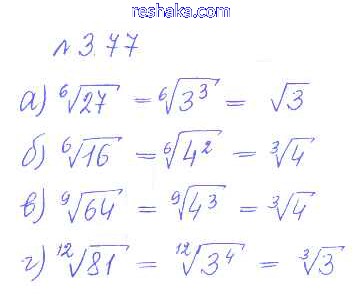 reshaka.com
№ 3.77
а) ⁶√27 = ⁶√3³ = √3
б) ⁶√16 = ⁶√4² = ³√4
в) ⁹√64 = ⁹√4³ = ³√4
г) ¹²√81 = ¹²√3⁴ = ³√3